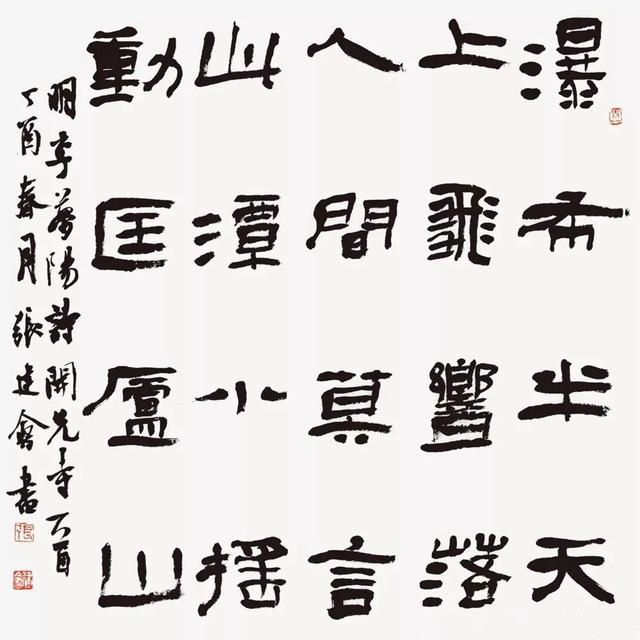 瀑布半天
上飛響落
人間莫言
此潭小搖
動匡廬山
明李夢陽詩開先寺
丁酉春月張建會書